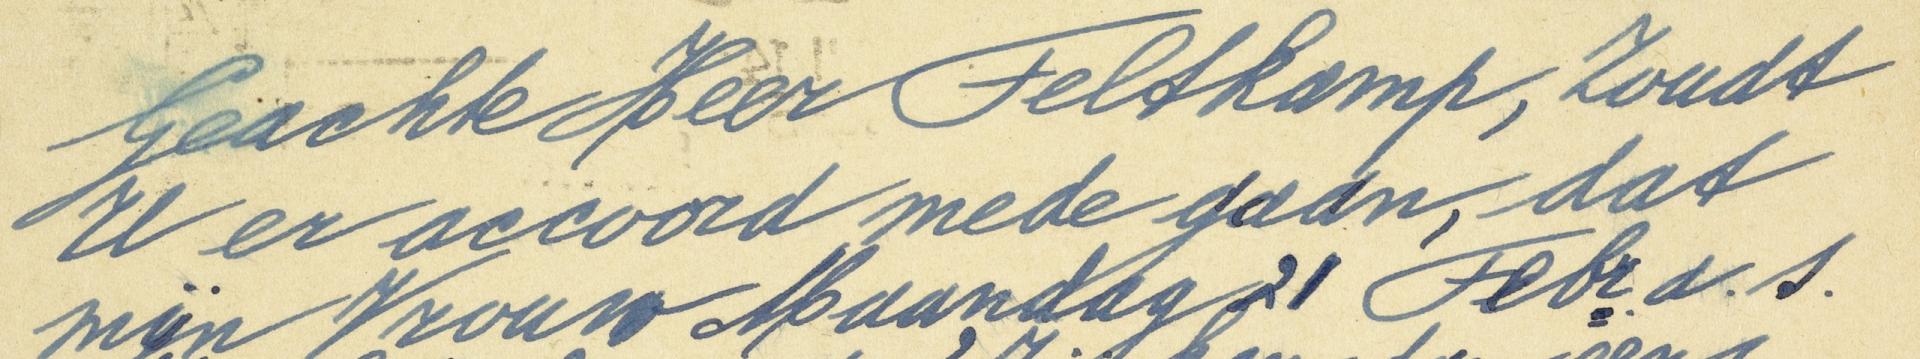 Geachte Heer Feltkamp, Zoudt
U er accoord mede gaan, dat
mijn Vrouw Maandag 21 Febr. a. s.